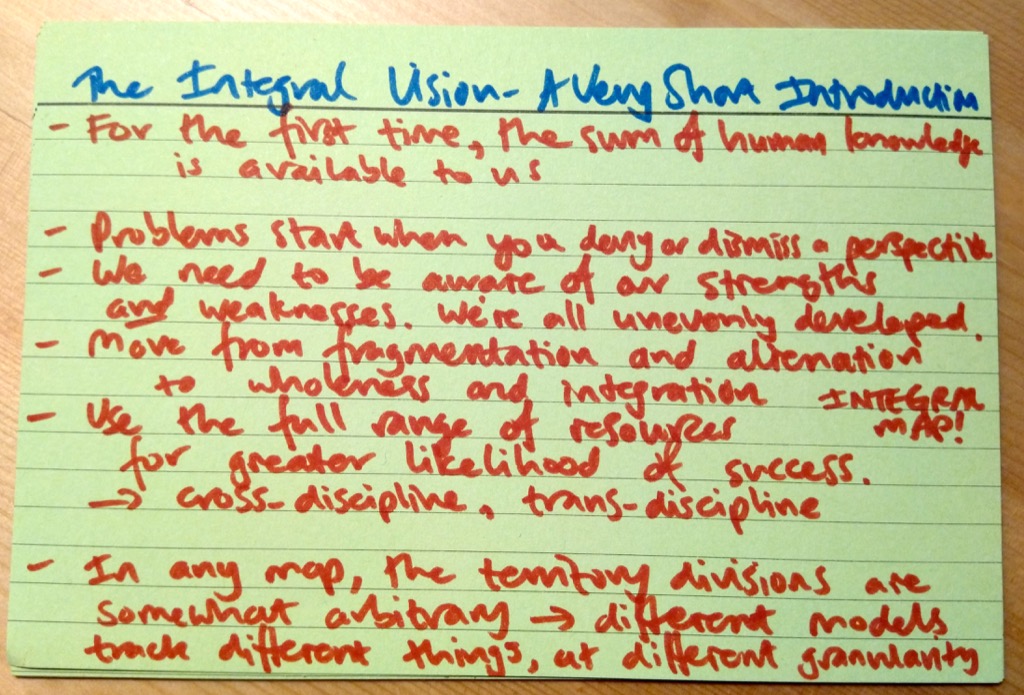 The Integral Vision - A Very Short Introduction
- For the first time, the sum of human knowledge
is available to us
- Problems start when you deny or dismiss a perspective
- We need to be aware of our strengths
and weaknesses. We're all unevenly developed.
- Move from fragmentation and alienation
to wholeness and integration
INTEGRAL
MAP!
- Use the full range of resources
for greater likelihood of success.
→ cross-discipline, trans-discipline
- In any map, the territory divisions are
somewhat arbitrary → different models
track different things, at different granularity